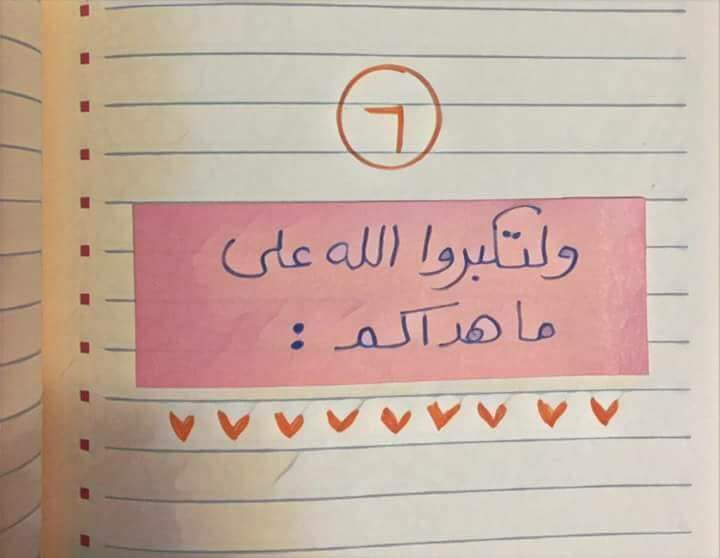 ٦
ولتكبروا الله على
ما هداكم :